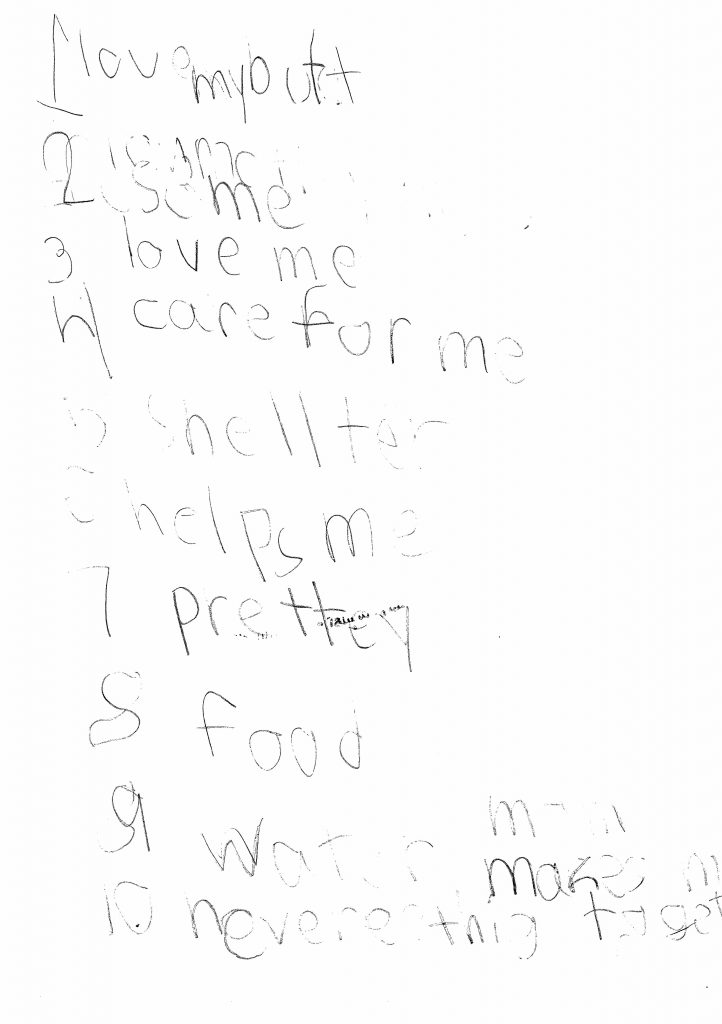 1 love my butt
2 me
3 love me
4 care for me
5 shellter
6 helps me
7 prettey
8 food
9 water
makes m
10 nevere thig to get